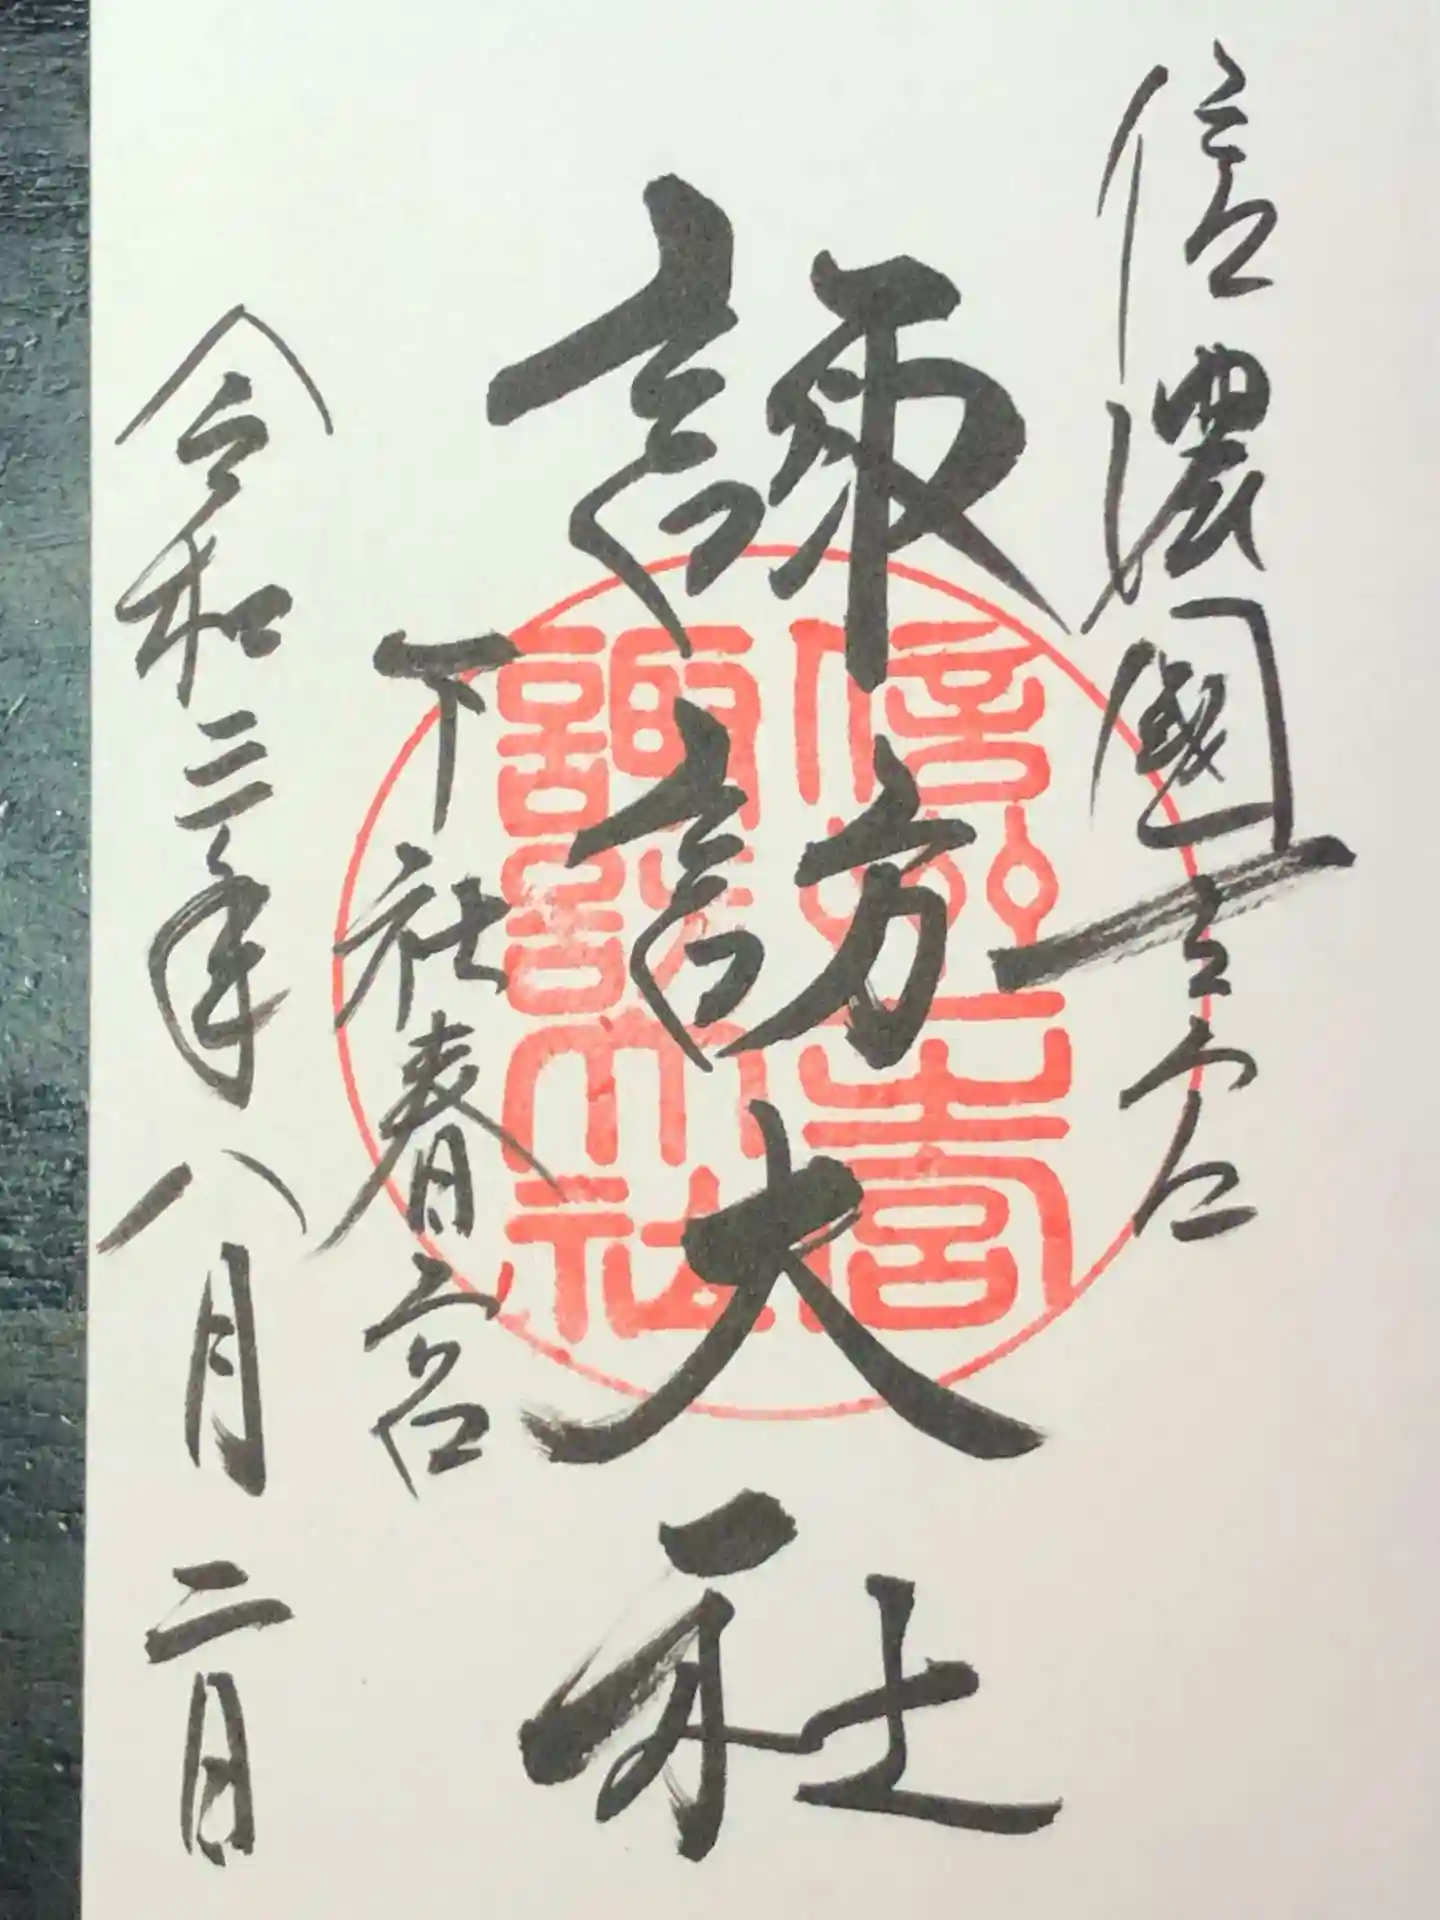 信濃國一之宮
諏訪大社
下社春宮
令和三年八月二日
信濃一宮
諏訪大社